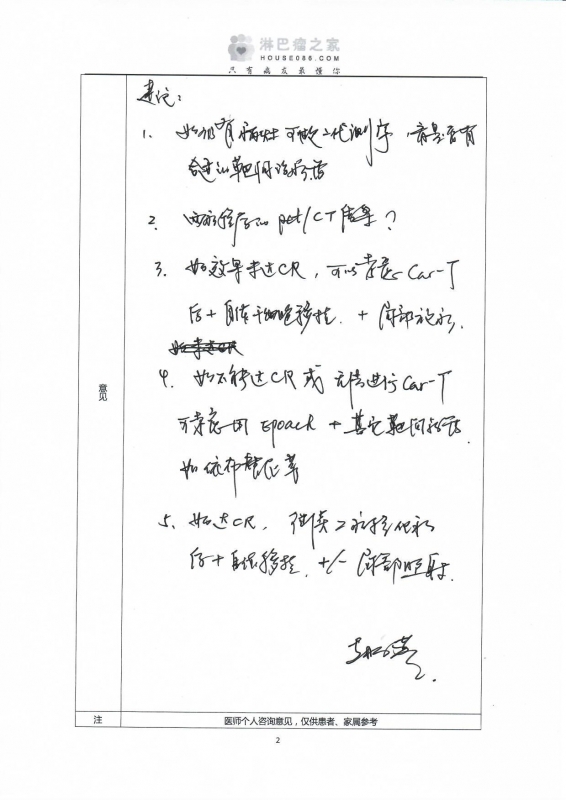 淋巴瘤之家
HOUSE086.COM
只有病友最懂你
意见
建议：
1、如仍有病灶可做二代测序，看是否有
合适的靶向治疗药
2、两疗程后的pet/CT结果？
3、如效果未达CR，可以考虑Car-T
后+自体干细胞移植、+局部放疗、
4、如不能达CR或无法进行Car-T
可考虑用EpochR+其它靶向药
如依布替尼等
5、如达CR，继续2疗程化疗
后+自体移植、+/-局部照射、
注
医师个人咨询意见，仅供患者、家属参考
2